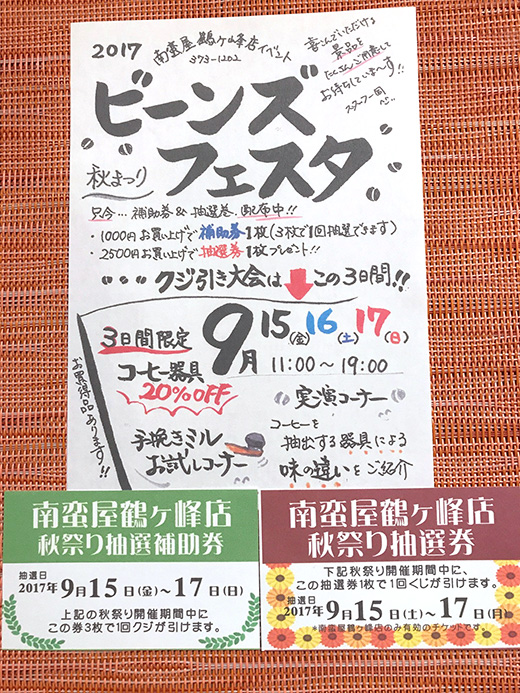 2017
南蛮屋 鶴ヶ峰店イベント
373-1202
喜んでいただける
景品を
たくさんご用意して
お待ちしていま〜す!!
スタッフ一同
ビーンズ
フェスタ
秋まつり
只今… 補助券 & 抽選巻、配布中!!
・1000円お買い上げで補助券1枚(3枚で1回抽選できます)
・2500円お買い上げで抽選券1枚プレゼント!!
クジ引き大会は この3日間!!
3日間限定
9月15(金)16(土)17(日)
11:00〜19:00
コーヒー器具
20%OFF
お買得品あります!!
実演コーナー
手挽きミル
お試しコーナー
コーヒーを
抽出する器具による
味の違いをご紹介
南蛮屋鶴ヶ峰店
秋祭り抽選補助券
抽選日
2017年9月15日(金)〜17日(日)
上記の秋祭り開催期間中に
この券3枚で1回クジが引けます。
南蛮屋鶴ヶ峰店
秋祭り抽選券
下記秋祭り開催期間中に、
この抽選券1枚で1回くじが引けます。
抽選日
2017年9月15日(土)〜17日(月)
*南蛮屋鶴ヶ峰店のみ有効のチケットです。